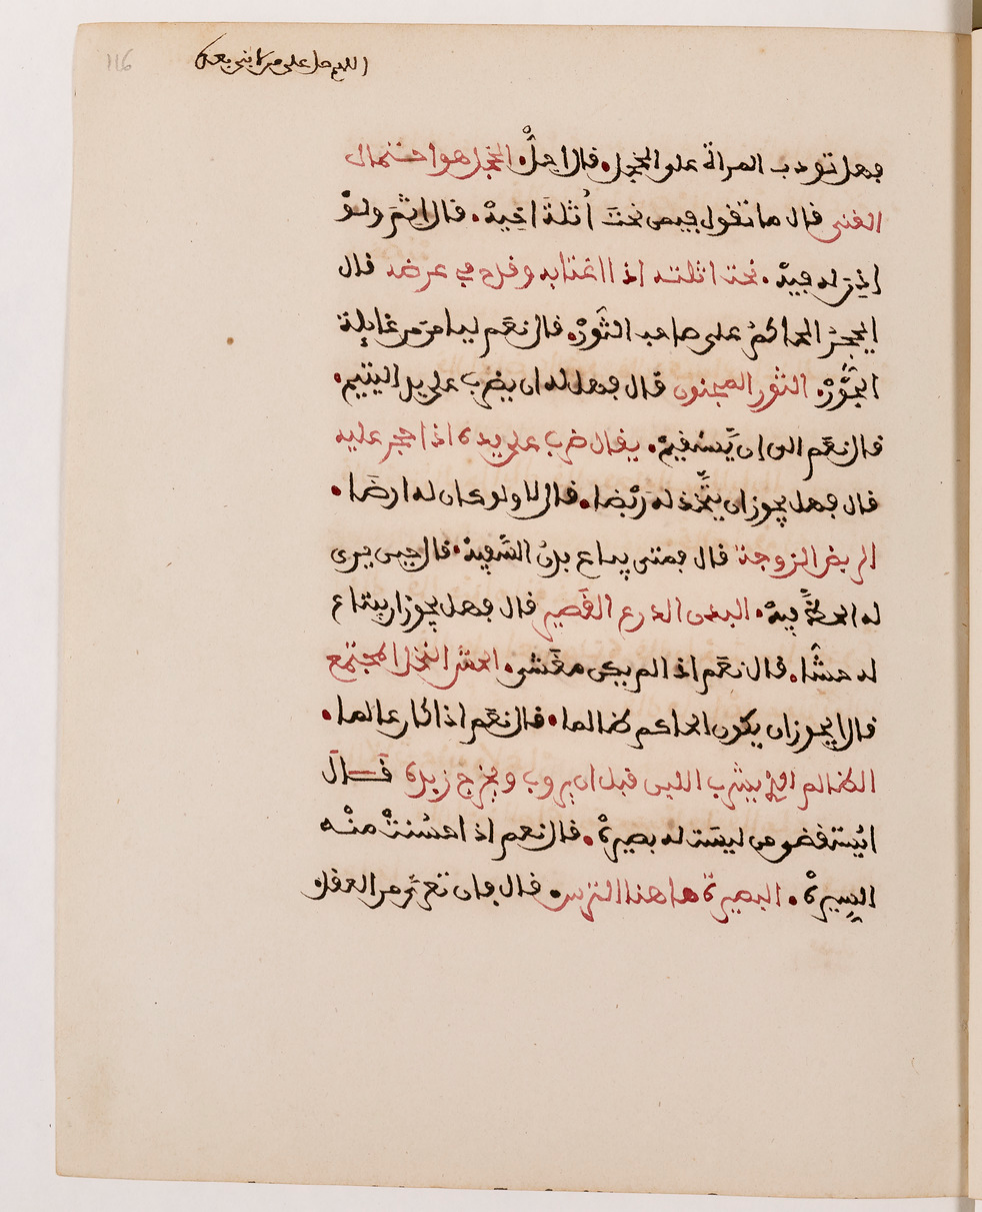 116
اللهم صل على من لا نبي بعده
فهل تودب المرأة على الخجل. قال اجل. الخجل هو احتمال
الغنى قال ما تقول فيمن نحت أثلة أخيه. قال اثم ولو
اذن له فيه. نحت اثلته اذا اغتابه وقدح في عرضه قال
ايحجر الحاكم على صاحب الثور. قال نعم ليامن من غايلة
الجور. الثور الجنون قال فهل له ان يضرب على يد اليتيم.
قال نعم الى ان يستقيم. يقال ضرب على يده اذا حجر عليه
قال فهل يجوز ان يتخذ له ربضا. قال لا ولو كان له ارضا.
الربض الزوجة قال فمتى يباع بدن السفيه. قال حين يرى
له الحظ فيه. البدن الدرع القصير قال فهل يجوز ان يبتاع
له حشا. قال نعم اذا لم يكن مغشى. الحش النخل المجتمع
قال ايجوز ان يكون الحاكم ظالما. قال نعم اذا كان عالما.
الظالم الذي يشرب اللبن قبل ان يروب ويخرج زبده قال
ايستقضى من ليست له بصيرة. قال نعم اذا حسنت منه
السيرة. البصيرة هاهنا الترس. قال فان تعرى من العقل